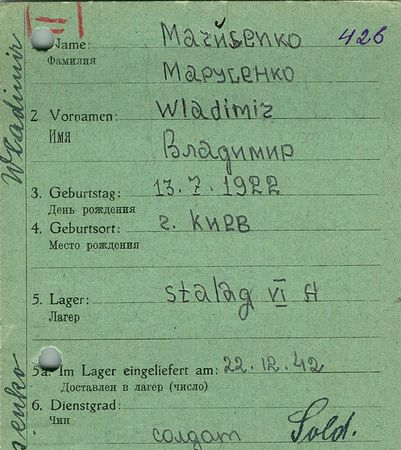 Name: Магйѣенко 426
Фамилия Марусенко
2. Vornamen: Wladimir
Имя Владимир
3. Geburtstag: 13.7.1922
День рождения
4. Geburtsort: г. Киев
Место рождения
5. Lager: Stalag VI A
Лагер
5a. Im Lager eingeliefert am: 22.12.42
Доставлен в лагер (число)
6. Dienstgrad:
Чин солдат Sold.
Wladimir
enko